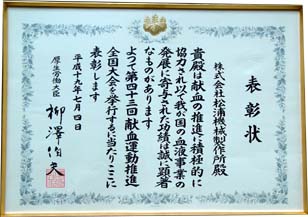 表彰状
株式会社松浦機械製作所殿
貴殿は献血の推進に積極的に
協力され以て我が国の血液事業の
発展に寄与された功績は誠に顕著
なものがあります
よつて第四十三回献血運動推進
全国大会を挙行するに当たりここに
表彰します
平成十九年七月四日
厚生労働大臣
柳澤伯夫